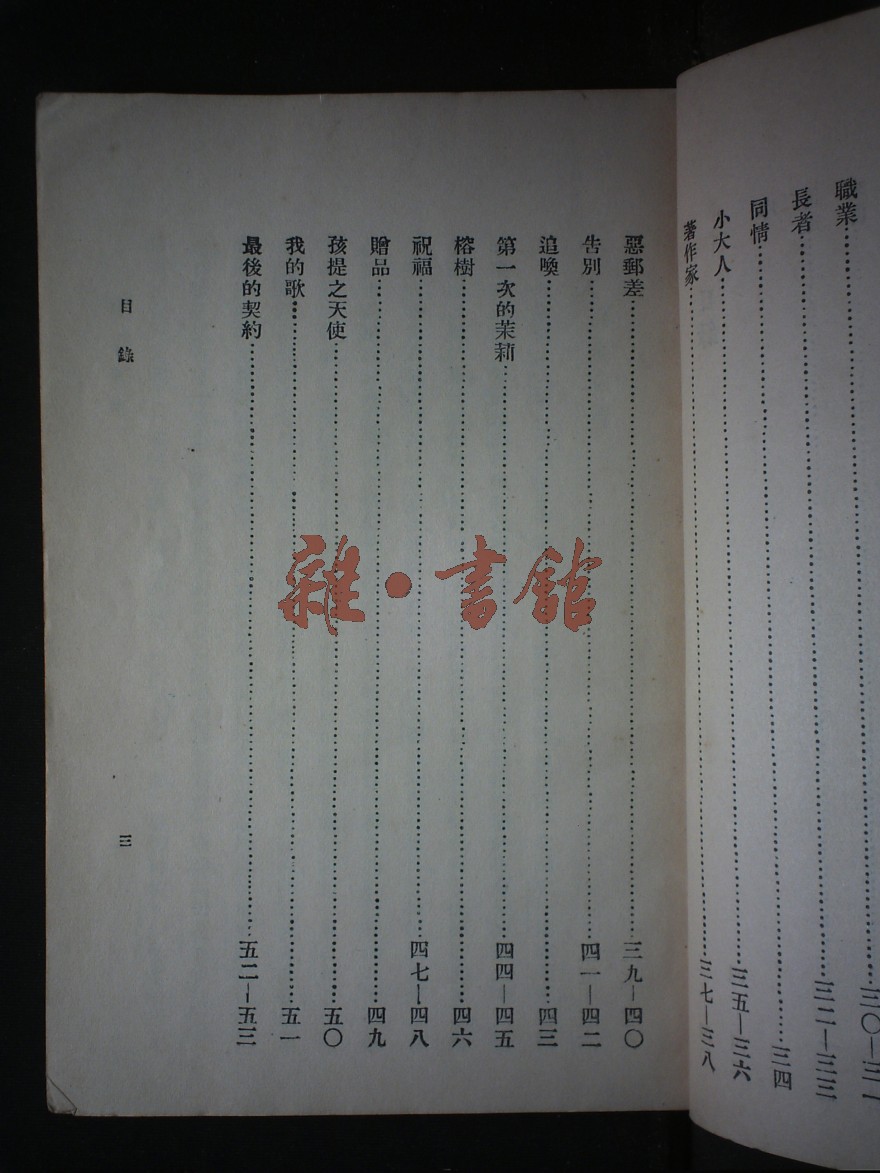 職業……三〇—三一
長者……三二—三三
同情……三四
小大人……三五—三六
著作家……三七—三八
惡郵差……三九—四〇
告別……四一—四二
追喚……四三
第一次的茉莉……四四—四五
榕樹……四六
祝福……四七—四八
贈品……四九
孩提之天使……五〇
我的歌……五一
最後的契約……五二—五三
目錄
三
雜·書館